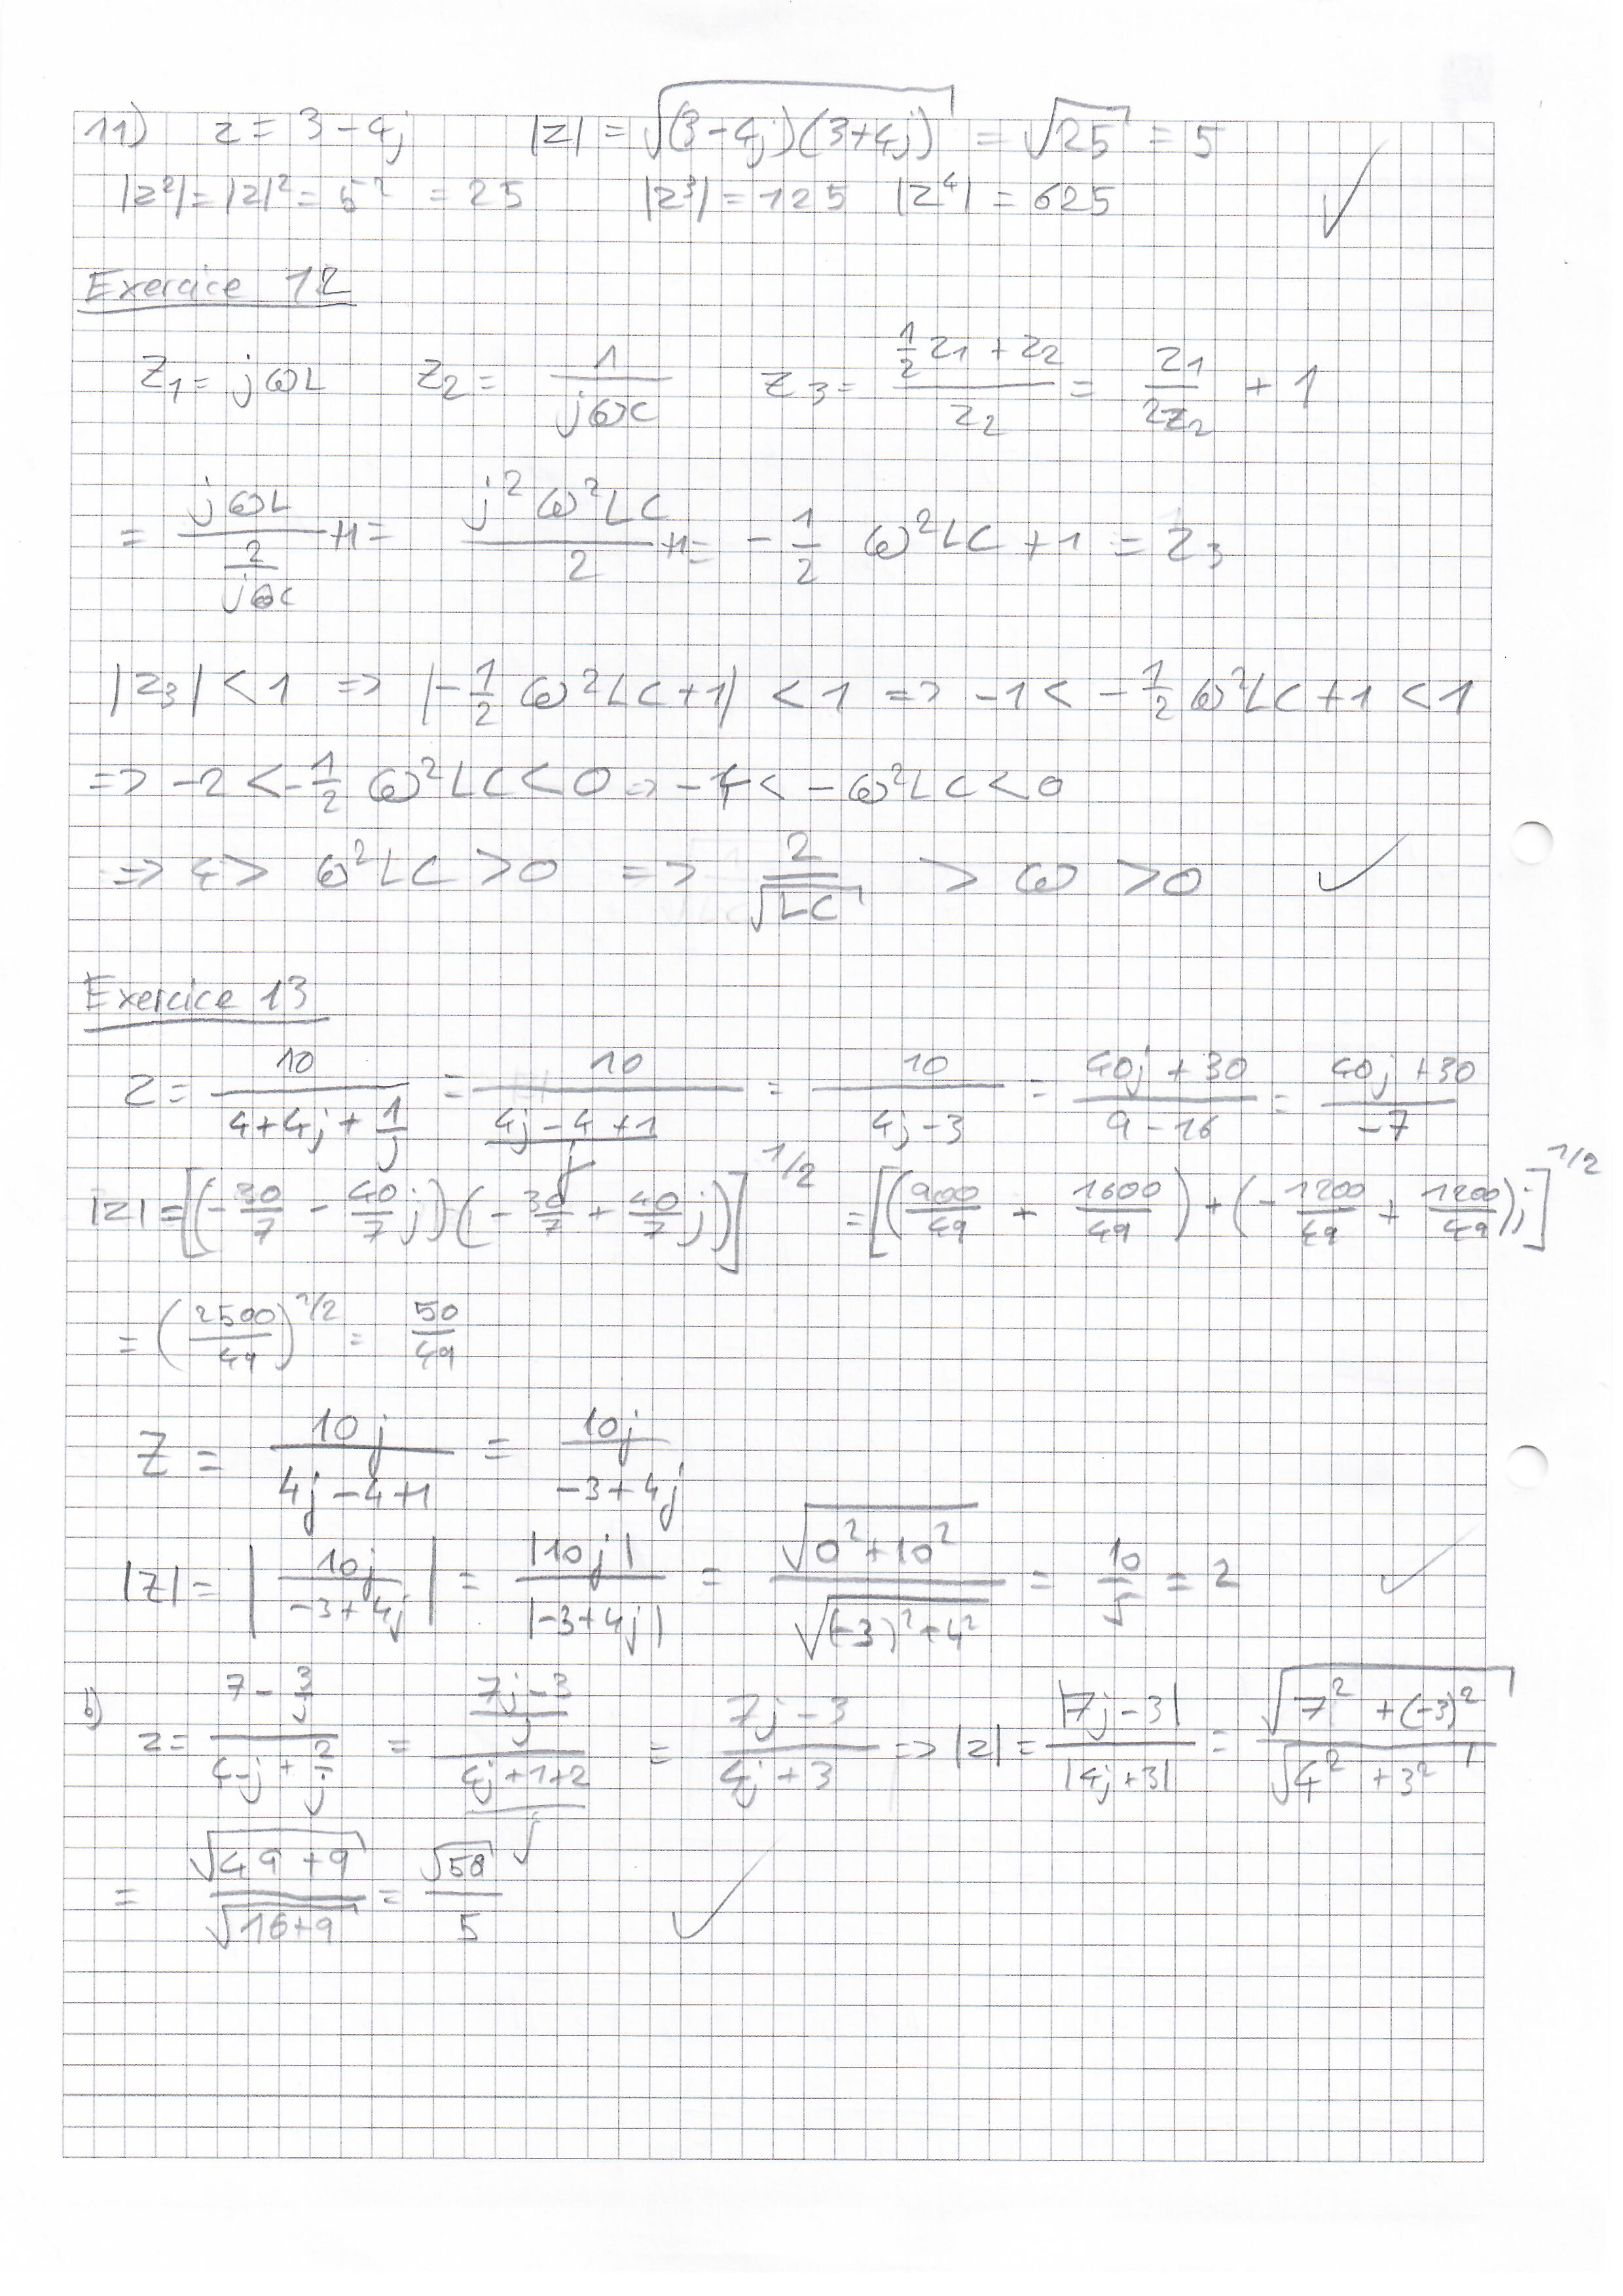 11) z = 3 - 4j |z| = √((3-4j)(3+4j)) = √25 = 5
|z²| = |z|² = 5² = 25 |z³| = 125 |z⁴| = 625 ✓
Exercice 12
Z₁ = jωL Z₂ = 1/(jωC) Z₃ = (½Z₁ + Z₂)/Z₂ = Z₁/(2Z₂) + 1
= jωL/(2/(jωC)) +1 = j²ω²LC/2 +1 = -½ ω²LC + 1 = Z₃
|Z₃| < 1 => |-½ ω²LC + 1| < 1 => -1 < -½ ω²LC + 1 < 1
=> -2 < -½ ω²LC < 0 => -4 < -ω²LC < 0
=> 4 > ω²LC > 0 => 2/√(LC) > ω > 0 ✓
Exercice 13
Z = 10/(4+4j+1/j) = 10/((4j-4+1)/j) = 10/(4j-3) = (40j+30)/(9-16) = (40j+30)/(-7)
|Z| = [(-30/7 - 40/7 j)(-30/7 + 40/7 j)]^1/2 = [(900/49 + 1600/49) + (-1200/49 + 1200/49)j]^1/2
= (2500/49)^1/2 = 50/49
Z = 10j/(4j-4+1) = 10j/(-3+4j)
|Z| = |10j/(-3+4j)| = |10j|/|-3+4j| = √(0²+10²)/√((-3)²+4²) = 10/5 = 2 ✓
b) z = (7 - 3/j)/(4-j+2/j) = ((7j-3)/j)/((4j+1+2)/j) = (7j-3)/(4j+3) => |z| = |7j-3|/|4j+3| = √(7²+(-3)²)/√(4²+3²)
= √(49+9)/√(16+9) = √58/5 ✓